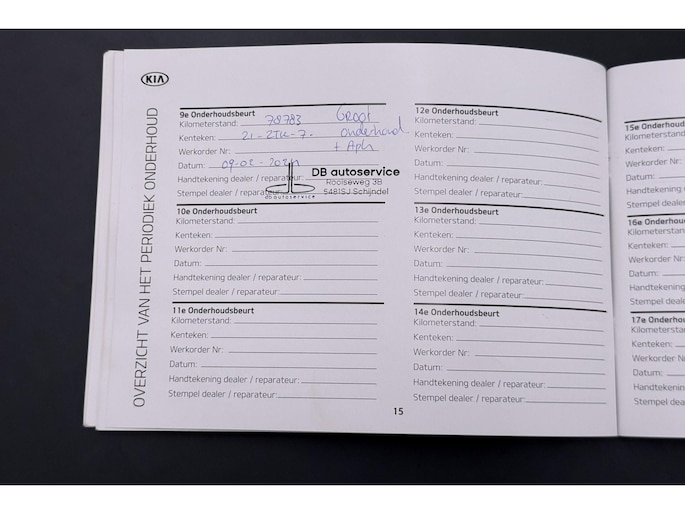 KIA
OVERZICHT VAN HET PERIODIEK ONDERHOUD
9e Onderhoudsbeurt
Kilometerstand: 78783 Groot
Kenteken: 21-ZTK-7. onderhoud
Werkorder Nr: + Apk
Datum: 09-02-2024
Handtekening dealer / reparateur:
Stempel dealer / reparateur:
DB autoservice
Rooiseweg 3B
5481SJ Schijndel
db autoservice
10e Onderhoudsbeurt
Kilometerstand:
Kenteken:
Werkorder Nr:
Datum:
Handtekening dealer / reparateur:
Stempel dealer / reparateur:
11e Onderhoudsbeurt
Kilometerstand:
Kenteken:
Werkorder Nr:
Datum:
Handtekening dealer / reparateur:
Stempel dealer / reparateur:
12e Onderhoudsbeurt
Kilometerstand:
Kenteken:
Werkorder Nr:
Datum:
Handtekening dealer / reparateur:
Stempel dealer / reparateur:
13e Onderhoudsbeurt
Kilometerstand:
Kenteken:
Werkorder Nr:
Datum:
Handtekening dealer / reparateur:
Stempel dealer / reparateur:
14e Onderhoudsbeurt
Kilometerstand:
Kenteken:
Werkorder Nr:
Datum:
Handtekening dealer / reparateur:
Stempel dealer / reparateur:
15
15e Onderhoud
Kilometerstan
Kenteken:
Werkorder Nr:
Datum:
Handtekening
Stempel deale
16e Onderhou
Kilometerstan
Kenteken:
Werkorder Nr:
Datum:
Handtekening
Stempel deale
17e Onderhou
Kilometerstan
Kenteken:
Werkorder Nr:
Datum:
Handtekening
Stempel dea